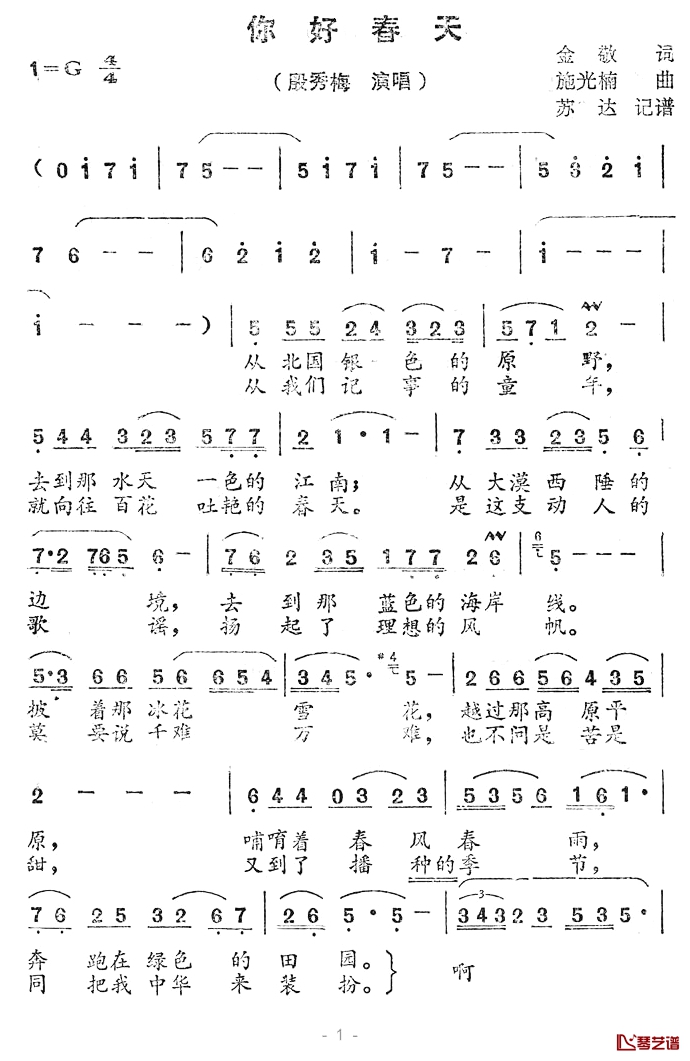 你好春天
1=G 4/4
（殷秀梅 演唱）
金敬 词
施光楠 曲
苏达 记谱
( 0 1 7 1 | 7 5 - - | 5 1 7 1 | 7 5 - - | 5 3 2 1 |
7 6 - - | 6 2 1 2 | 1 - 7 - | 1 - - - |
1 - - - ) | 5 55 24 323 | 571 2 - |
从北国银色的原野，
从我们记事的童年，
544 323 577 | 2 1· 1 - | 7 33 235 6 |
去到那水天一色的江南；从大漠西陲的
就向往百花吐艳的春天。是这支动人的
7·2 7665 6 - | 76 2 35 177 26 | 5 - - |
边境，去到那蓝色的海岸线。
歌谣，扬起了理想的风帆。
5·3 66 56 654 | 345· #4 5 - | 266 56 435 |
披着那冰花雪花，越过那高原平
莫要说千难万难，也不问是苦是
2 - - - | 644 03 23 | 5356 161· |
原，哺育着春风春雨，
甜，又到了播种的季节，
76 25 32 67 | 26 5· 5 - | 3 34323 535 |
奔跑在绿色的田园。} 啊
同把我中华来装扮。
- 1 -
琴艺谱